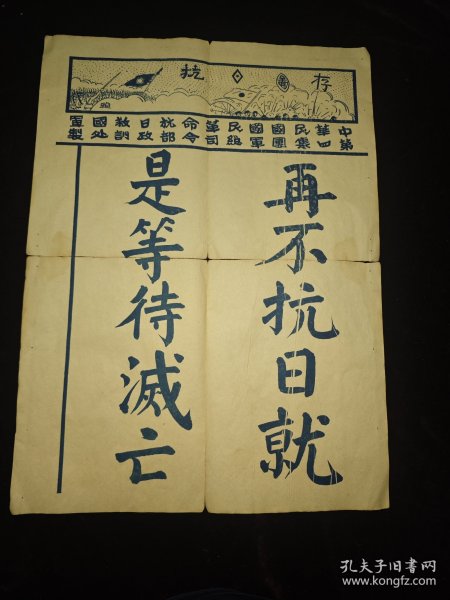 抗 存
中華民國國民革命抗日救國宣
第四集團軍總司令部政訓处製
再不抗日就
是等待滅亡
孔夫子旧書网
www.kongfz.com